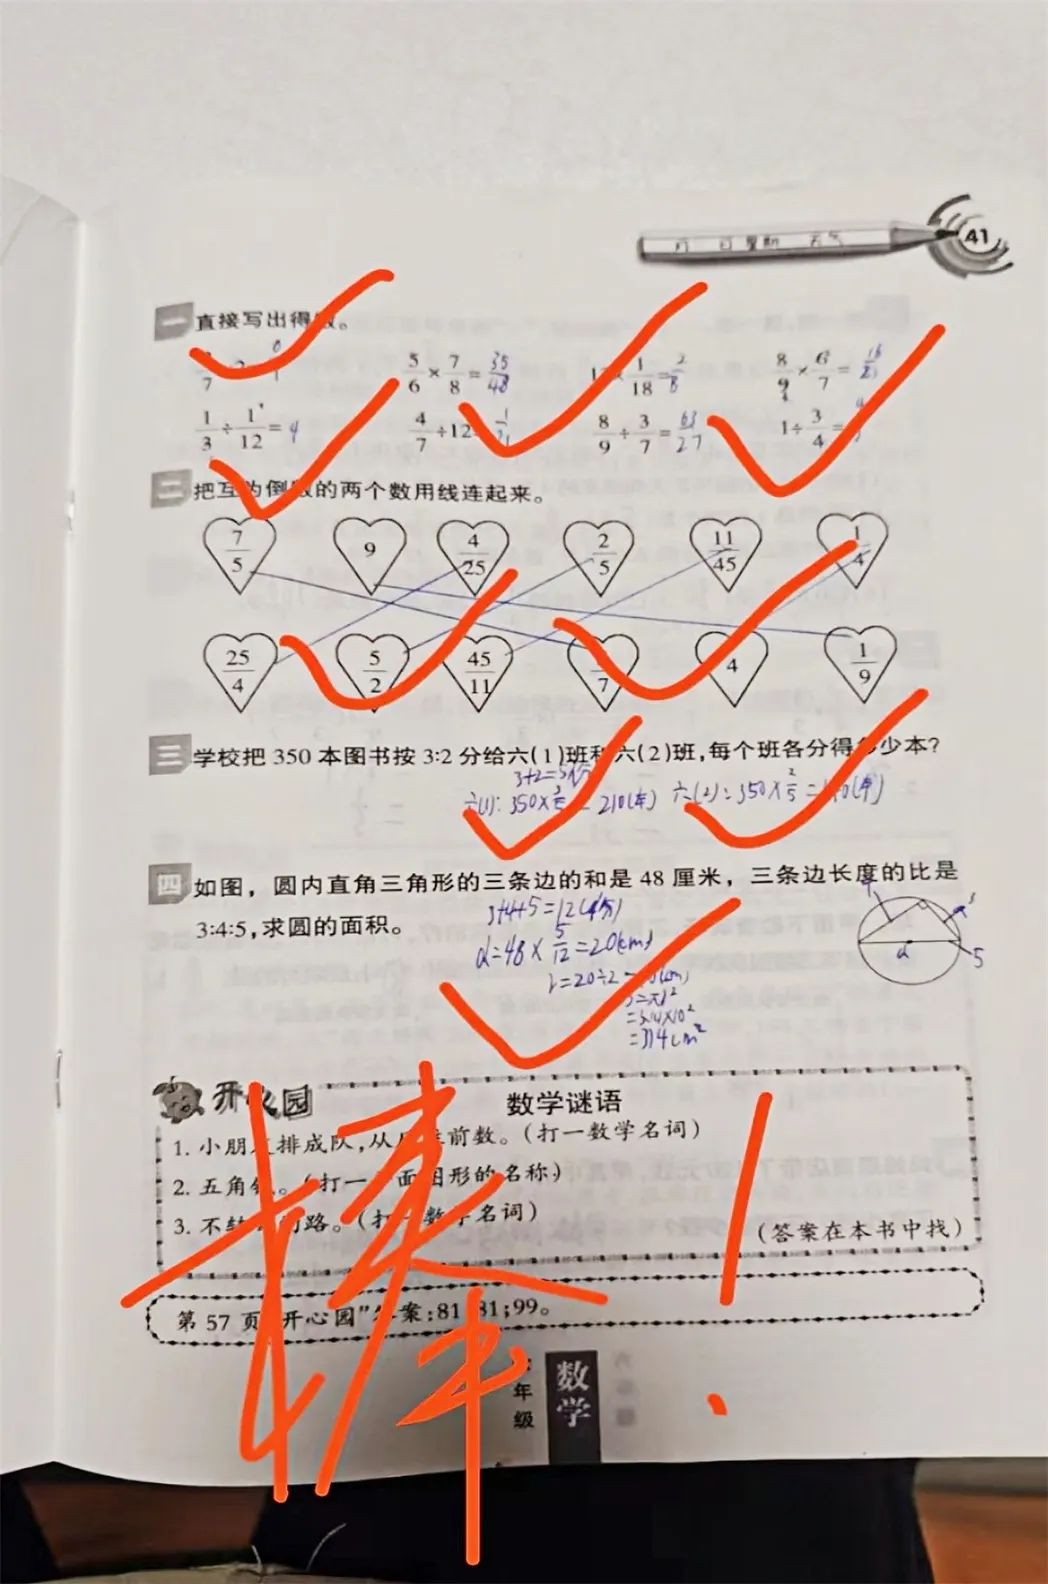 月 日 星期 天气
41
一 直接写出得数。
5/6 × 7/8 = 35/48 8/9 × 6/7 = 16/21
1/3 ÷ 1/12 = 4 4/7 ÷ 12 8/9 ÷ 3/7 = 63/27 1 ÷ 3/4 =
二 把互为倒数的两个数用线连起来。
7/5 9 4/25 2/5 11/45 1/4
25/4 5/2 45/11 7 4 1/9
三 学校把 350 本图书按 3:2 分给六(1)班和六(2)班,每个班各分得多少本?
3+2=5(份)
六(1): 350×3/5 = 210(本) 六(2): 350×2/5 = 140(本)
四 如图，圆内直角三角形的三条边的和是 48 厘米，三条边长度的比是
3:4:5,求圆的面积。
3+4+5=12(份)
d=48×5/12=20(cm)
r=20÷2=10(cm)
S=πr²
=3.14×10²
=314cm²
d
5
开心园
数学谜语
1. 小朋友排成队,从后往前数。(打一数学名词)
2. 五角钱。(打一平面图形的名称)
3. 不转弯的路。(打一数学名词)
(答案在本书中找)
第 57 页"开心园"答案:81;81;99。
棒！
年级
数学